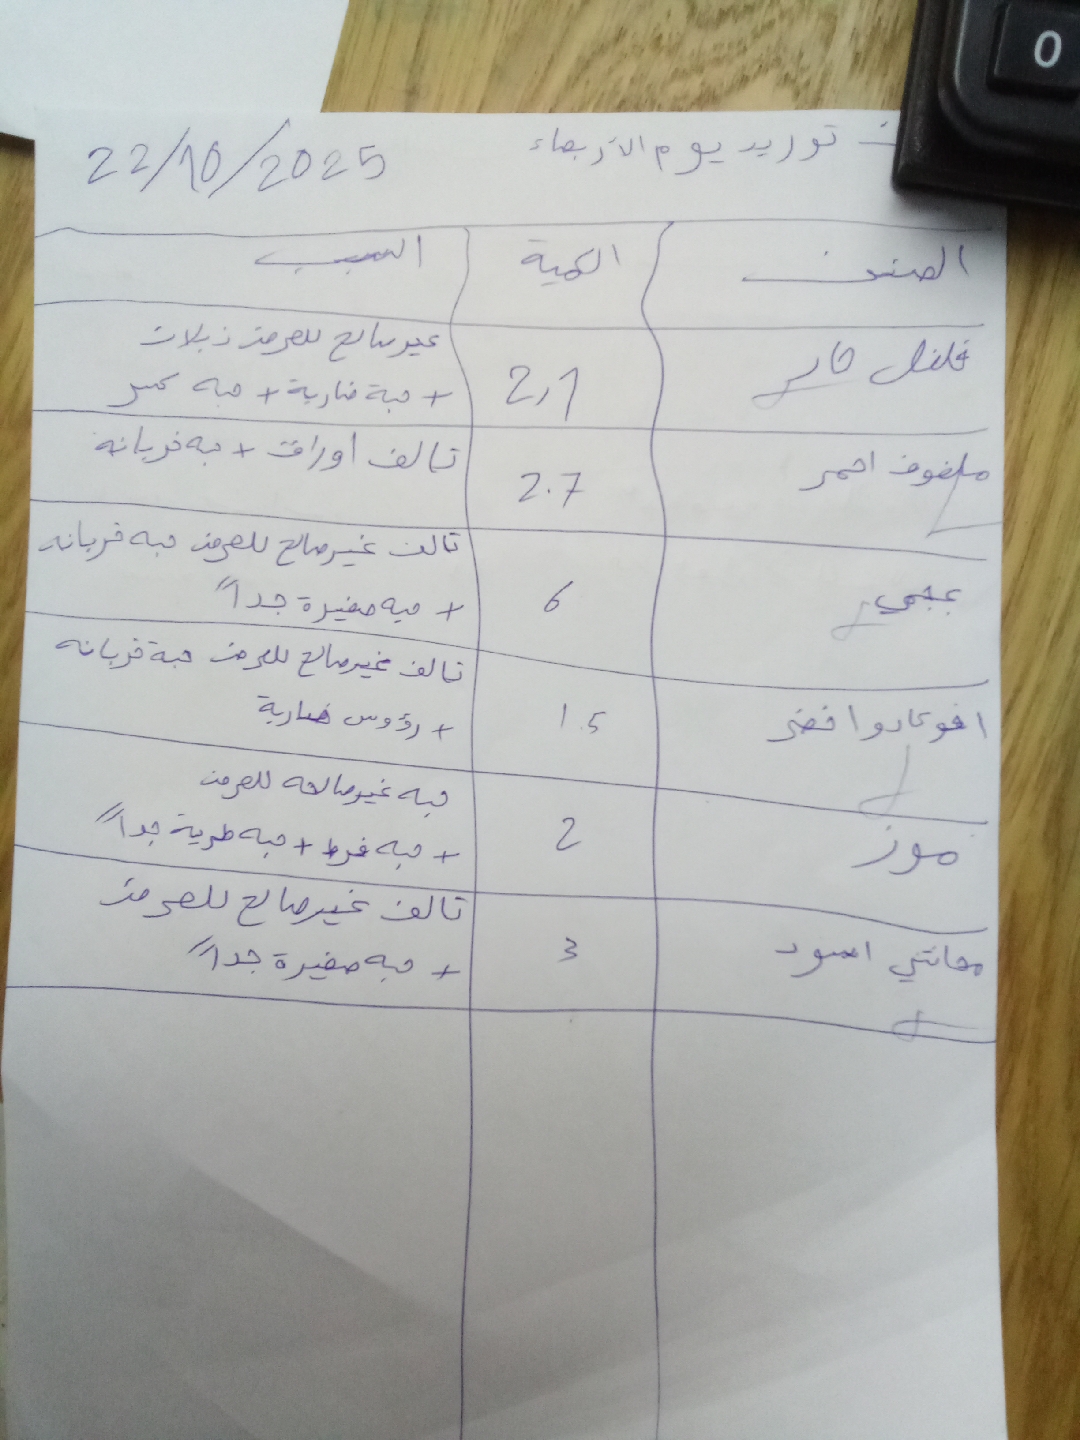 توريد يوم الأربعاء 22/10/2025
الصنف الكمية السبب
فلفل حار 2,1 غير صالح للصرف ذبلان
+ حبة ضاربة + حبه كسر
ملفوف احمر 2.7 تالف اوراق + حبه خربانه
عجمي 6 تالف غير صالح للصرف حبه خربانه
+ حبه صغيرة جداً
افوكادوا اخضر 1.5 تالف غير صالح للصرف حبة خربانه
+ رؤوس ضاربة
موز 2 حبه غير صالحه للصرف
+ حبه فرط + حبه طرية جداً
اسود 3 تالف غير صالح للصرف
+ حبه صغيرة جداً
0